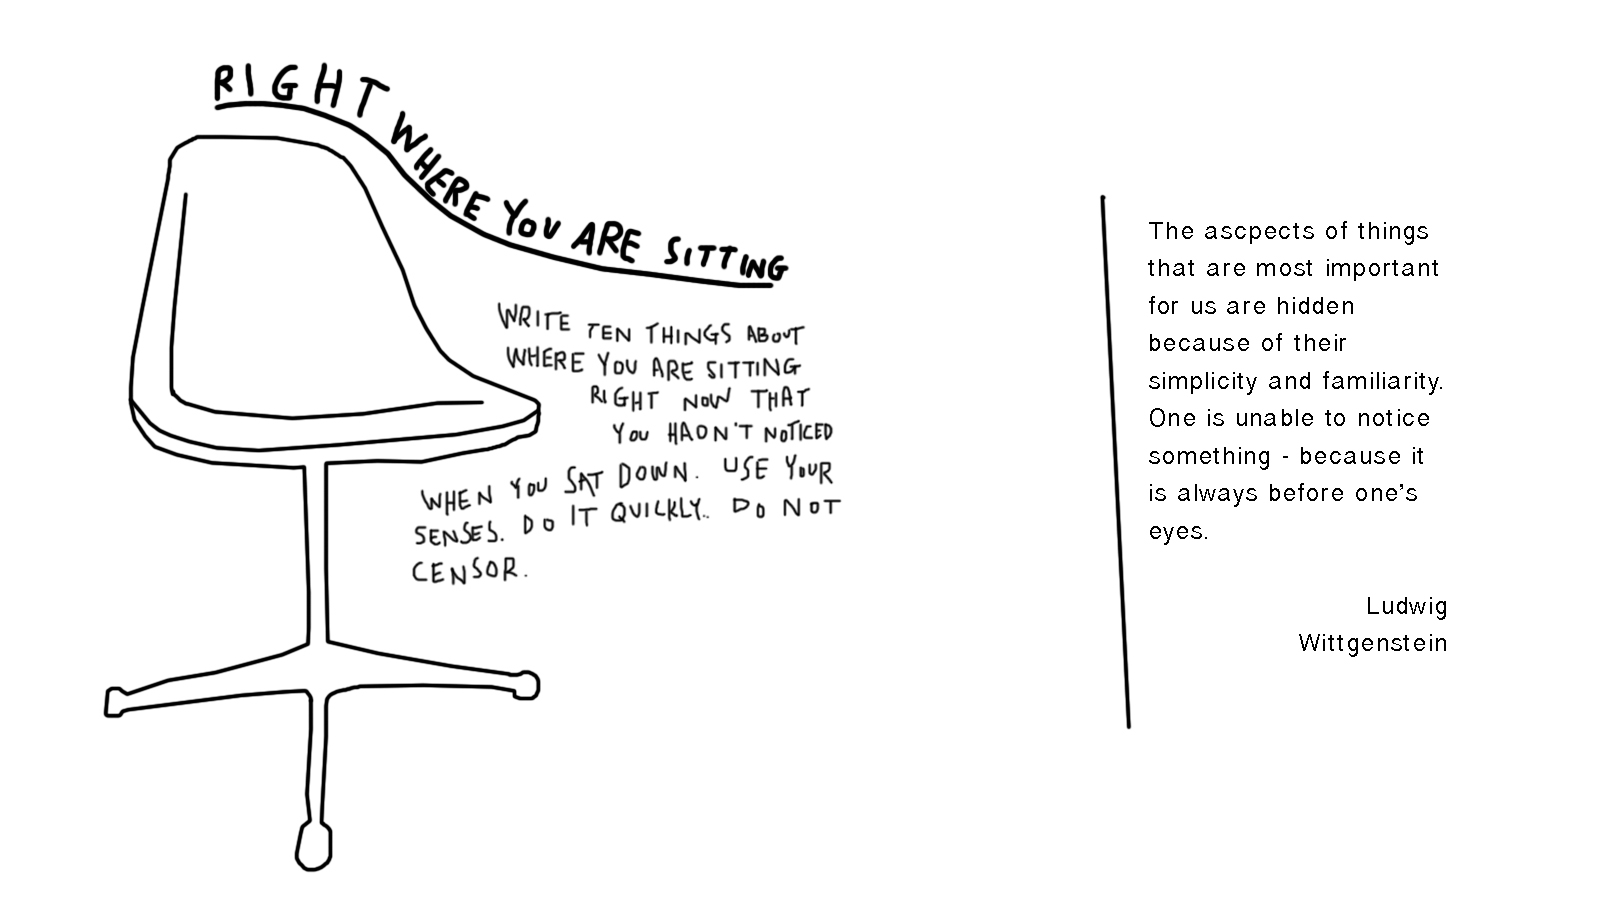 RIGHT WHERE YOU ARE SITTING
WRITE TEN THINGS ABOUT
WHERE YOU ARE SITTING
RIGHT NOW THAT
YOU HADN'T NOTICED
WHEN YOU SAT DOWN. USE YOUR
SENSES. DO IT QUICKLY. DO NOT
CENSOR.
The ascpects of things
that are most important
for us are hidden
because of their
simplicity and familiarity.
One is unable to notice
something - because it
is always before one's
eyes.
Ludwig
Wittgenstein